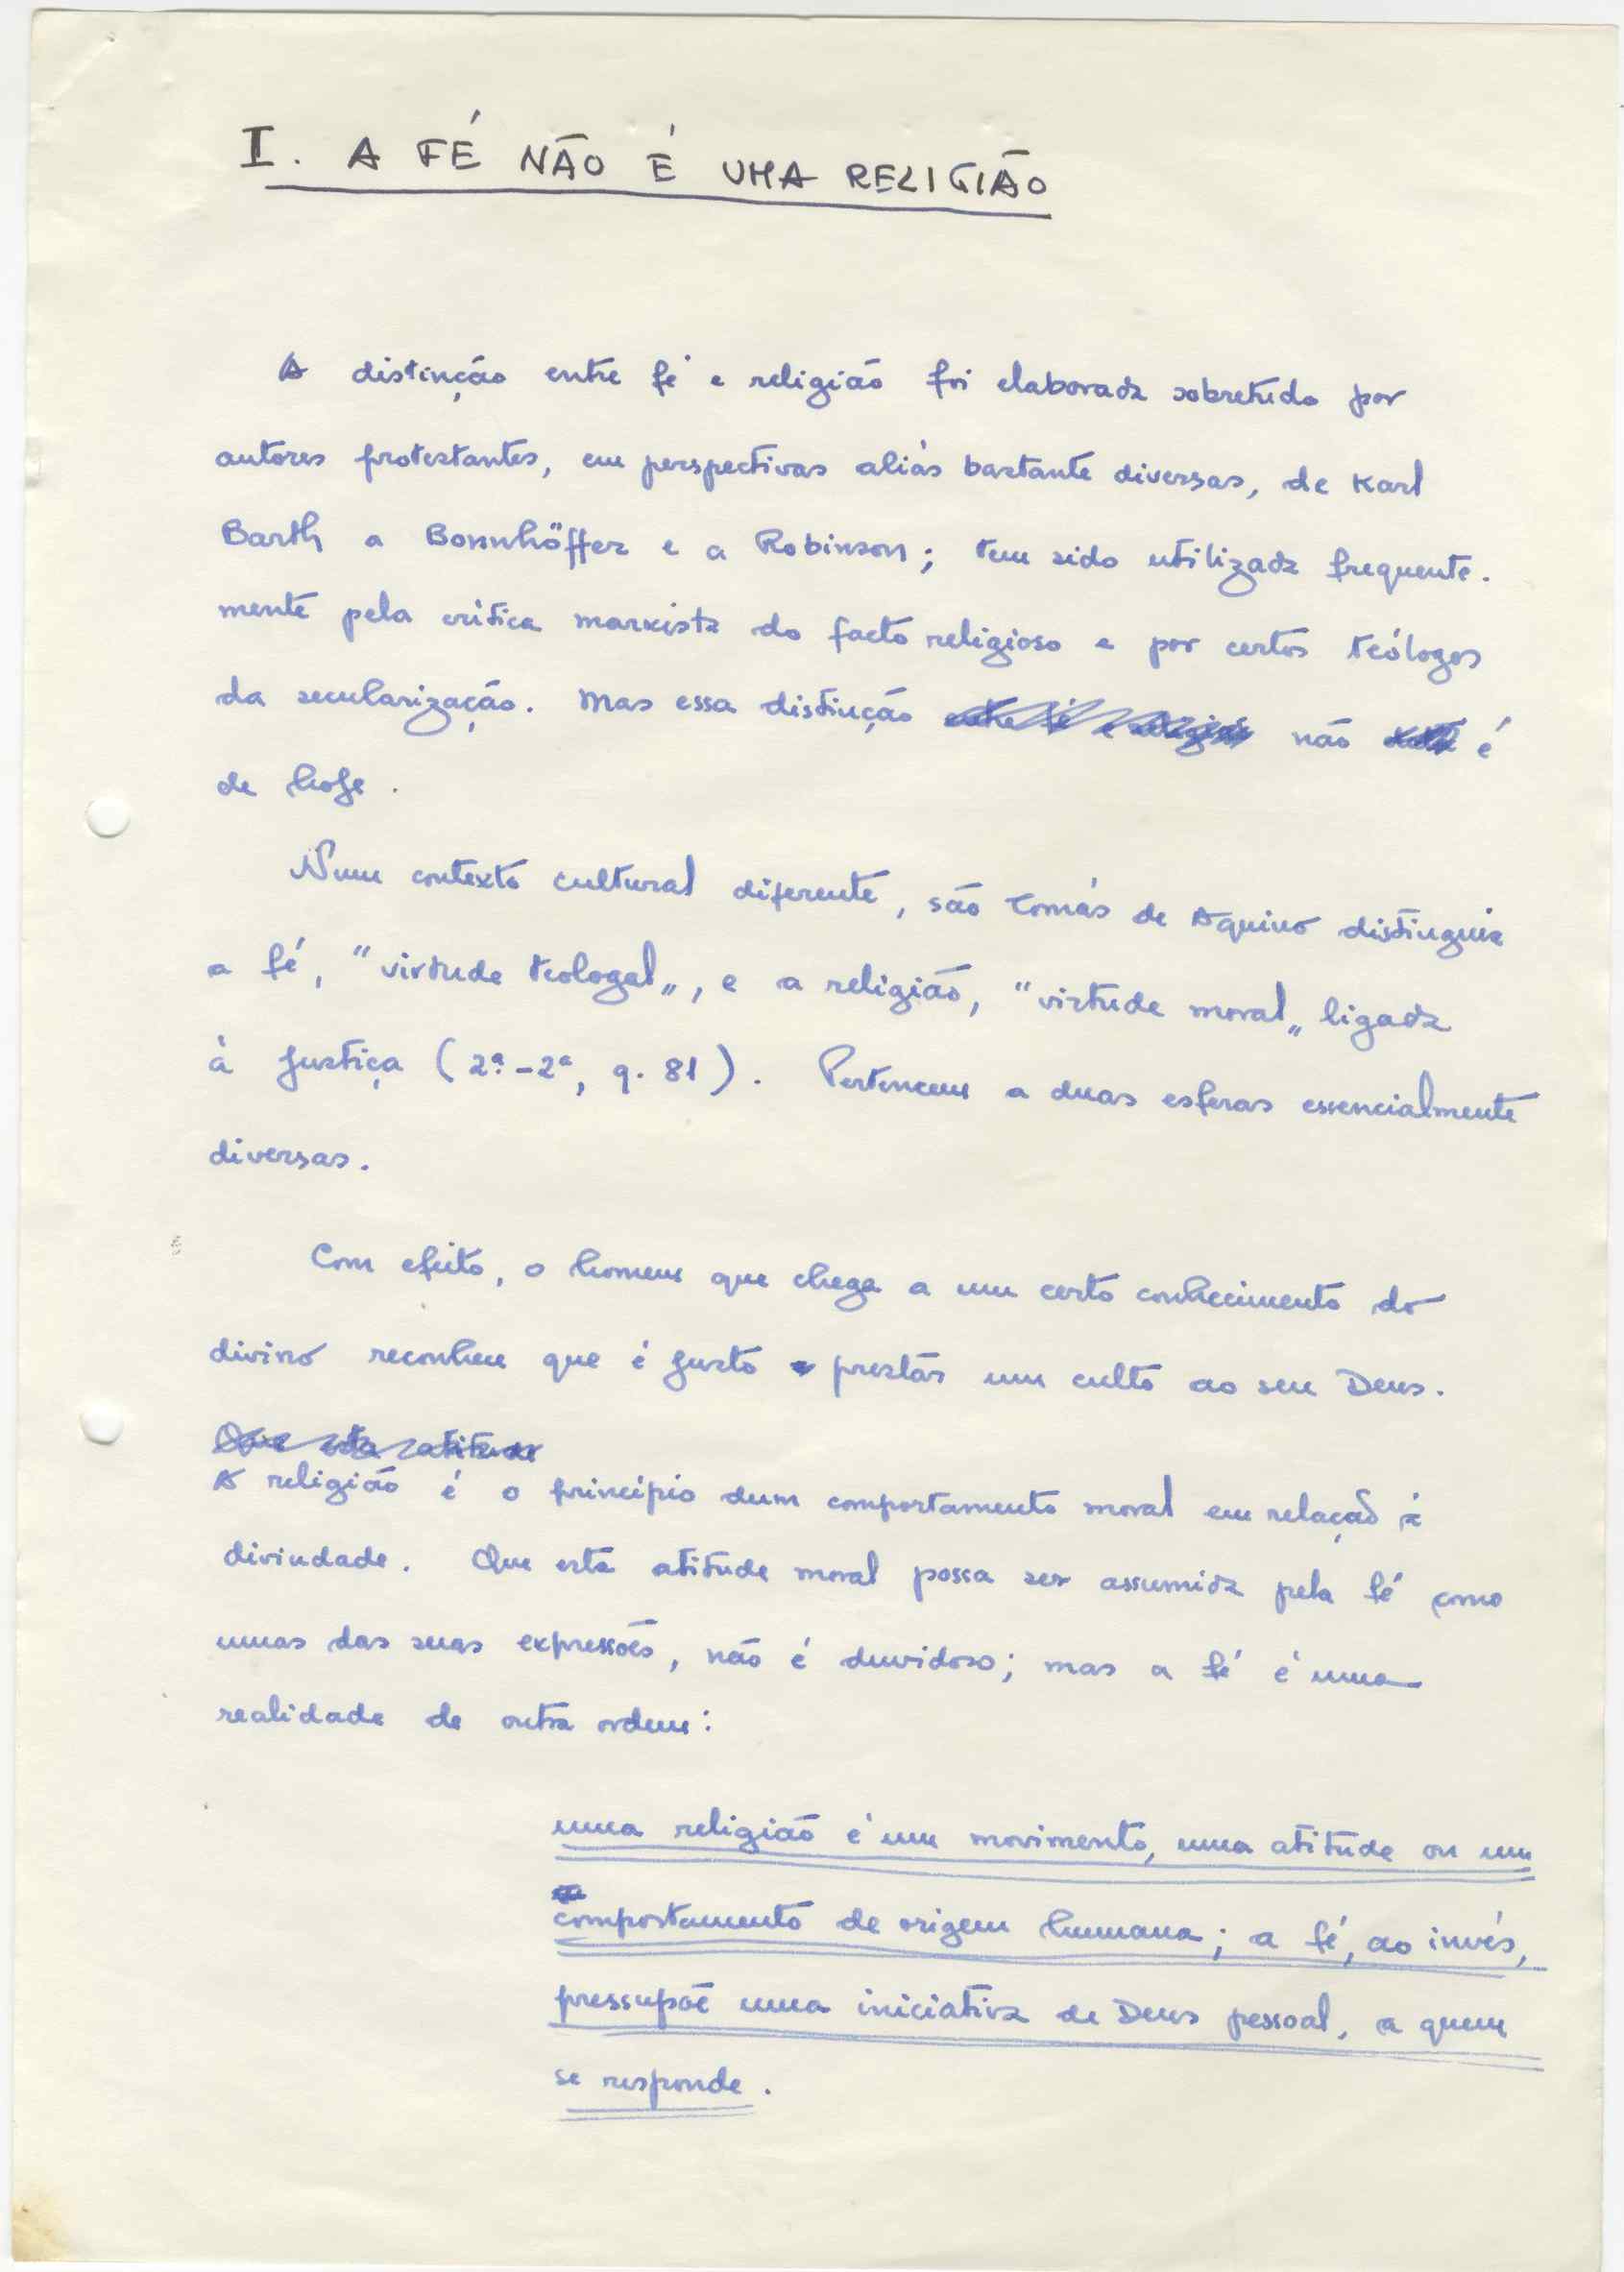 I. A FÉ NÃO É UMA RELIGIÃO
A distinção entre fé e religião foi elaborada sobretudo por
autores protestantes, em perspectivas aliás bastante diversas, de Karl
Barth a Bonnhöffer e a Robinson; tem sido utilizada frequente-
mente pela crítica marxista do facto religioso e por certos teólogos
da secularização. Mas essa distinção entre fé e religião não é
de hoje.
Num contexto cultural diferente, são Tomás de Aquino distinguia
a fé, "virtude teologal", e a religião, "virtude moral" ligada
à justiça (2ª-2ª, q. 81). Pertencem a duas esferas essencialmente
diversas.
Com efeito, o homem que chega a um certo conhecimento do
divino reconhece que é justo prestar um culto ao seu Deus.
Que esta atitude
A religião é o princípio dum comportamento moral em relação à
divindade. Que esta atitude moral possa ser assumida pela fé como
umas das suas expressões, não é duvidoso; mas a fé é uma
realidade de outra ordem:
uma religião é um movimento, uma atitude ou um
comportamento de origem humana; a fé, ao invés,
pressupõe uma iniciativa de Deus pessoal, a quem
se responde.